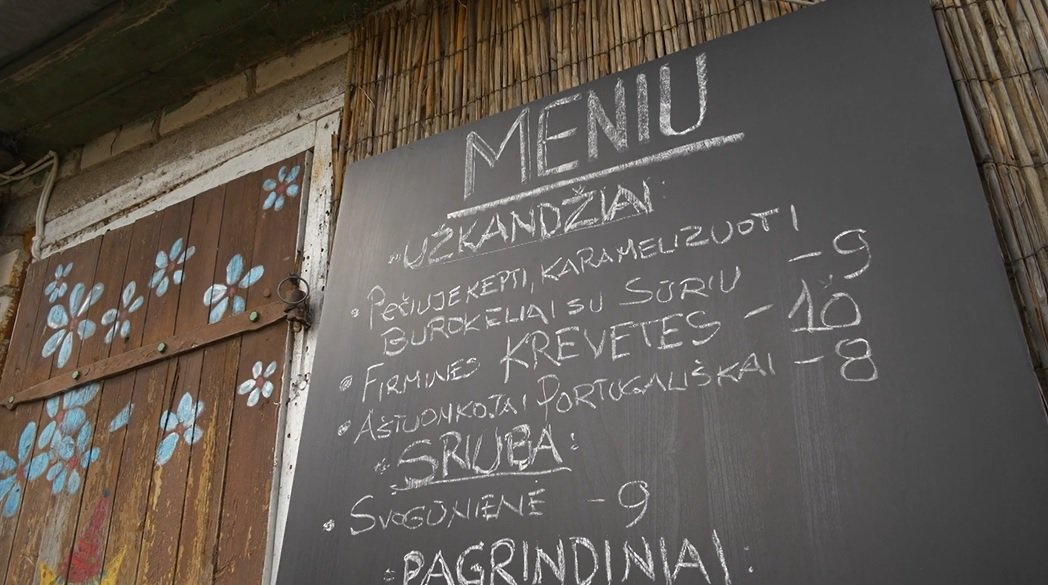 MENIU
UŽKANDŽIAI:
• PEČIUJE KEPTI, KARAMELIZUOTI
BUROKELIAI SU SŪRIU - 9
• FIRMINĖS KREVETĖS - 10
• AŠTUONKOJAI PORTUGALIŠKAI - 8
SRIUBA:
• SVOGŪNIENĖ - 9
PAGRINDINIAI: